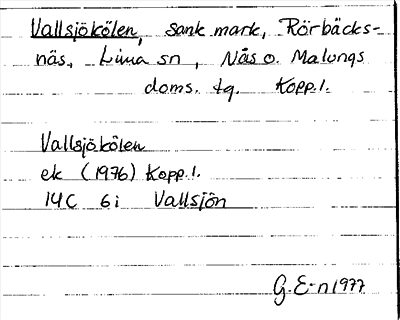 Vallsjökölen, sank mark, Rörbäcks-
näs, Lima sn, Nås o. Malungs
doms. tg. Kopp.l.
Vallsjökölen
ek (1976) Kopp.l.
14C 6i Vallsjön
G.E-n 1977